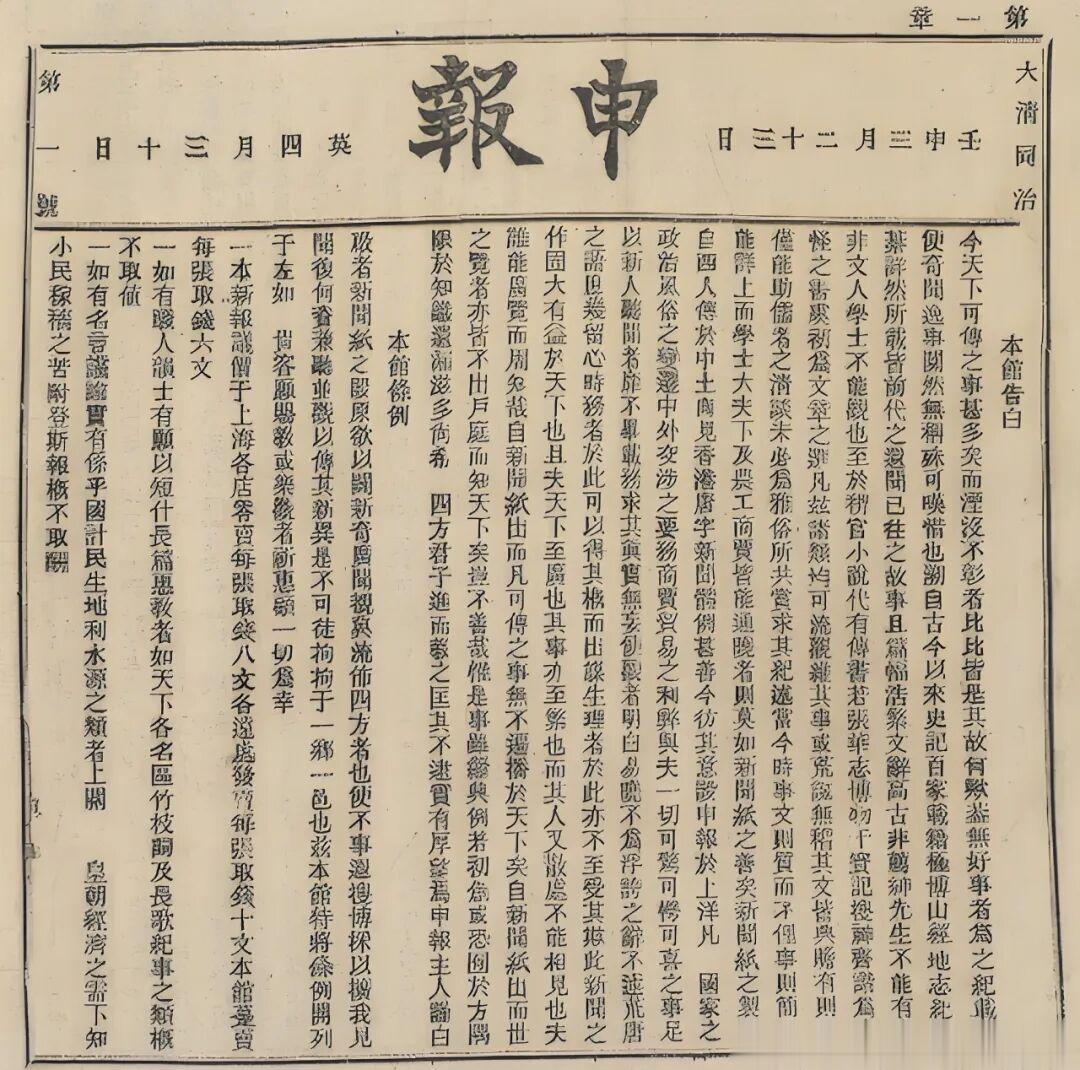 第一章
大清同治
壬申三月二十三日
申報
英四月三十日
第一號
本館告白
今天下可傳之事甚多矣而湮沒不彰者比比皆是其故何歟蓋無好事者為之紀載
使奇聞逸事闃然無稱殊可嘆惜也溯自古今以來史記百家載籍極博山經地志紀
纂詳然所載皆前代之遺聞已往之故事且篇幅浩繁文辭高古非薦紳先生不能有
非文人學士不能觀也至於稗官小說代有傳書若張華志博物干寶記搜神齊諧為
怪之書虞初為文章之雜凡茲諸類均可流觀維其事或荒誕無稽其文皆典贍有則
僅能助儒者之清談未必為雅俗所共賞求其紀述當今時事文則質而不俚事則簡
能詳上而學士大夫下及農工商賈皆能通曉者則莫如新聞紙之善矣新聞紙之製
自西人傳於中土向見香港唐字新聞體例甚善今仿其意設申報於上洋凡　國家之
政治風俗之變遷中外交涉之要務商賈貿易之利弊與夫一切可驚可愕可喜之事足
以新人聽聞者靡不畢載務求其真實無妄使觀者明白易曉不為浮誇之辭不述荒唐
之語庶幾留心時務者於此可以得其概而出謀生理者於此亦不至受其欺此新聞之
作固大有益於天下也且夫天下至廣也其事亦至繁也而其人又散處不能相見也夫
誰能廣覽而周知哉自新聞紙出而凡可傳之事無不遍播於天下矣自新聞紙出而世
之覽者亦皆不出戶庭而知天下矣豈不善哉惟是事雖典例者初為或恐囿於方隅
限於知識遺漏滋多尚希　四方君子進而教之匡其不逮實有厚望焉申報主人謹白
本館條例
啟者新聞紙之設原欲以闢新奇廣聞覩冀流佈四方者也使不事遐搜博採以擴我見
聞復何資兼聽並觀以傳其新異是不可徒拘拘于一鄉一邑也茲本館特將條例開列
于左如　騷客願賜教或樂覽者祈惠顧一切為幸
一本新報議價于上海各店零賣每張取錢八文各遠處發賣每張取錢十文本館躉賣
每張取錢六文
一如有騷人韻士有願以短什長篇惠教者如天下各名區竹枝詞及長歌紀事之類概
不取值
一如有名言讜論實有係乎國計民生地利水源之類者上關　皇朝經濟之需下知
小民稼穡之苦附登斯報概不取酬